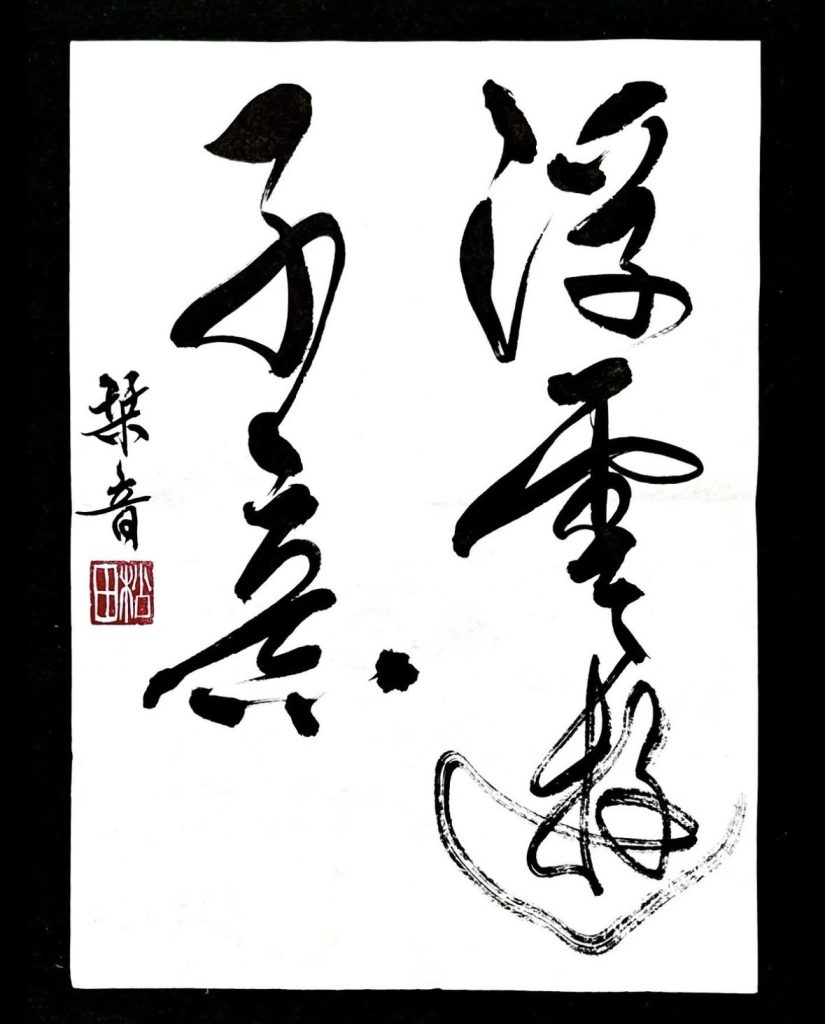 浮雲遊
子意
栞音
松田